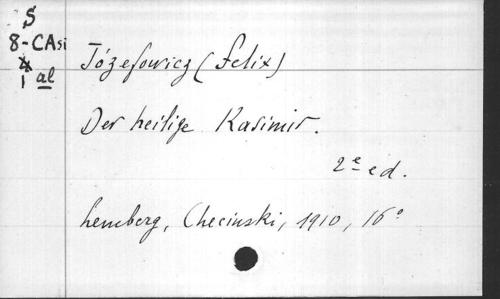 S
8-CAsi
4
1 al
Józefowicz (Felix)
Der heilige Kasimir.
2e ed.
Lemberg, Checinski, 1910, 16°